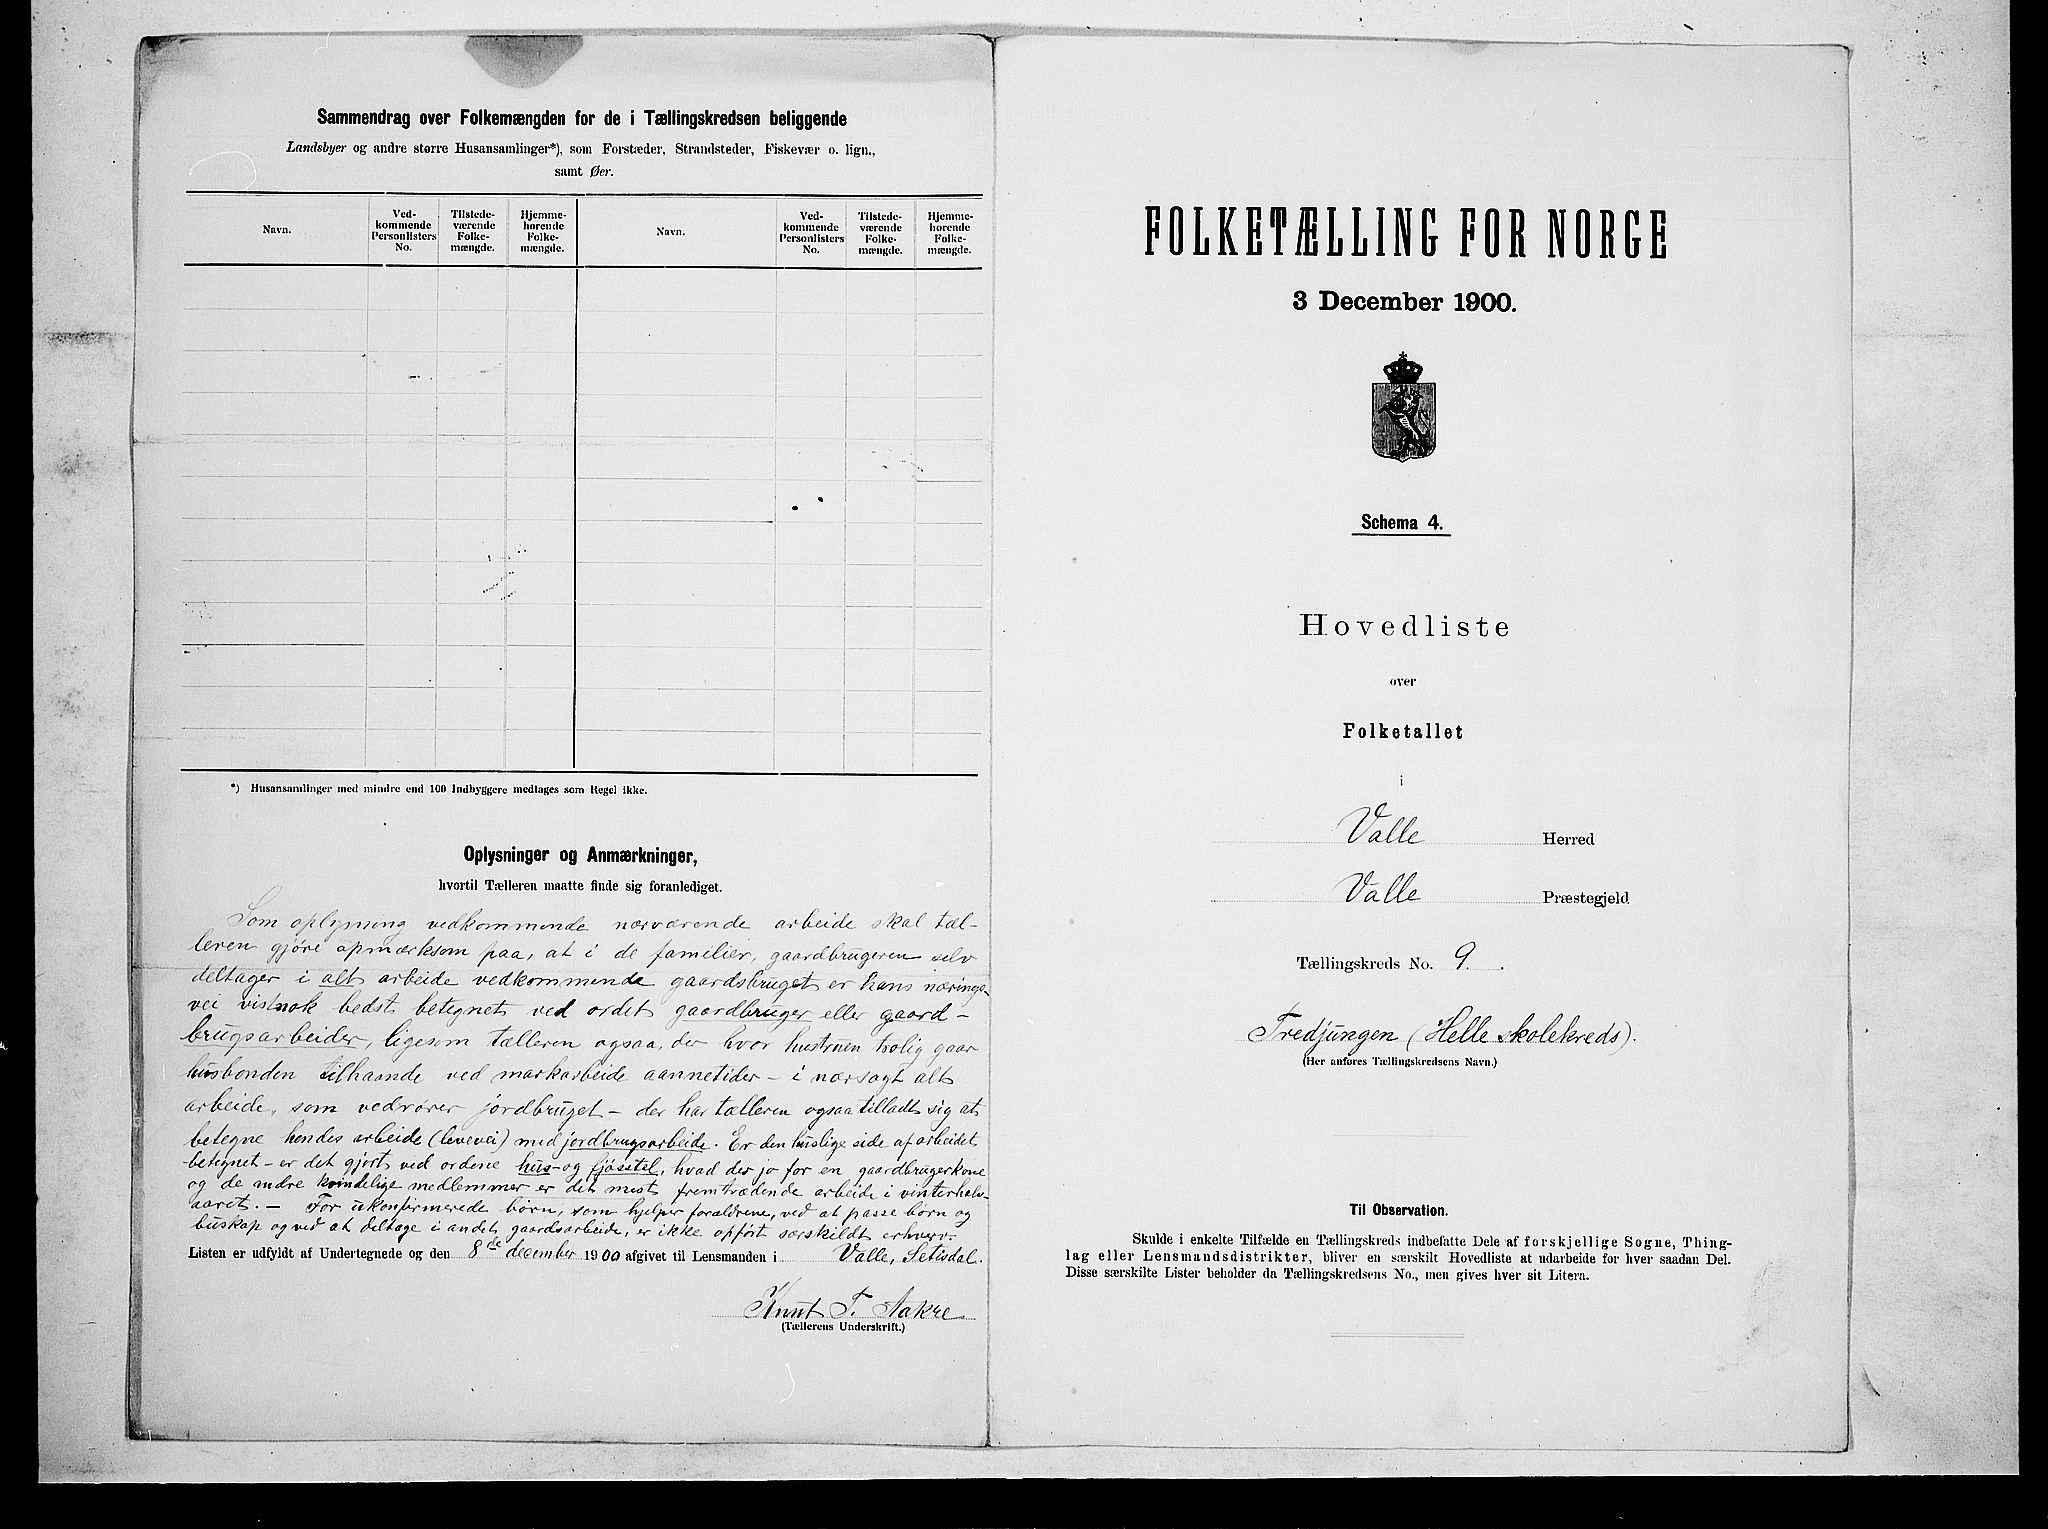 Sammendrag over Folkemængden for de i Tællingskredsen beliggende
Landsbyer og andre større Husansamlinger*), som Forstæder, Strandsteder, Fiskevær o. lign.,
samt Øer.
Navn.
Ved-
kommende
Personlisters
No.
Tilstede-
værende
Folke-
mængde.
Hjemme-
hørende
Folke-
mængde.
Navn.
Ved-
kommende
Personlisters
No.
Tilstede-
værende
Folke-
mængde.
Hjemme-
hørende
Folke-
mængde.
*) Husansamlinger med mindre end 100 Indbyggere medtages som Regel ikke.
Oplysninger og Anmærkninger,
hvortil Tælleren maatte finde sig foranlediget.
Som oplysning vedkommende nærværende arbeide skal tæl-
leren gjøre opmærksom paa, at i de familier, gaardbrugeren selv
deltager i alt arbeide vedkommende gaardsbruget er hans nærings-
vei vistnok bedst betegnet ved ordet gaardbruger eller gaard-
brugsarbeider, ligesom tælleren ogsaa, der hvor hustruen trolig gaar
husbonden tilhaande ved markarbeide aannetider - i nærsagt alt
arbeide, som vedrører jordbruget - der har tælleren ogsaa tilladt sig at
betegne hendes arbeide (levevei) med jordbrugsarbeide. Er den huslige side af arbeidet
betegnet - er det gjort ved ordene hus- og fjøsstel, hvad der jo for en gaardbrugerkone
og de andre kvindelige medlemmer er det mest fremtrædende arbeide i vinterhalv-
aaret. - For ukonfirmerede børn, som hjelper forældrene, ved at passe børn og
buskap og ved at deltage i andet gaardsarbeide, er ikke opført særskildt erhverv.
Listen er udfyldt af Undertegnede og den 8de december 1900 afgivet til Lensmanden i Valle, Setisdal.
Knut T. Aakre
(Tællerens Underskrift.)
FOLKETÆLLING FOR NORGE
3 December 1900.
Schema 4.
Hovedliste
over
Folketallet
i
Valle Herred
Valle Præstegjeld
Tællingskreds No. 9.
Tredjungen (Helle skolekreds).
(Her anføres Tællingskredsens Navn.)
Til Observation.
Skulde i enkelte Tilfælde en Tællingskreds indbefatte Dele af forskjellige Sogne, Thing-
lag eller Lensmandsdistrikter, bliver en særskilt Hovedliste at udarbeide for hver saadan Del.
Disse særskilte Lister beholder da Tællingskredsens No., men gives hver sit Litera.